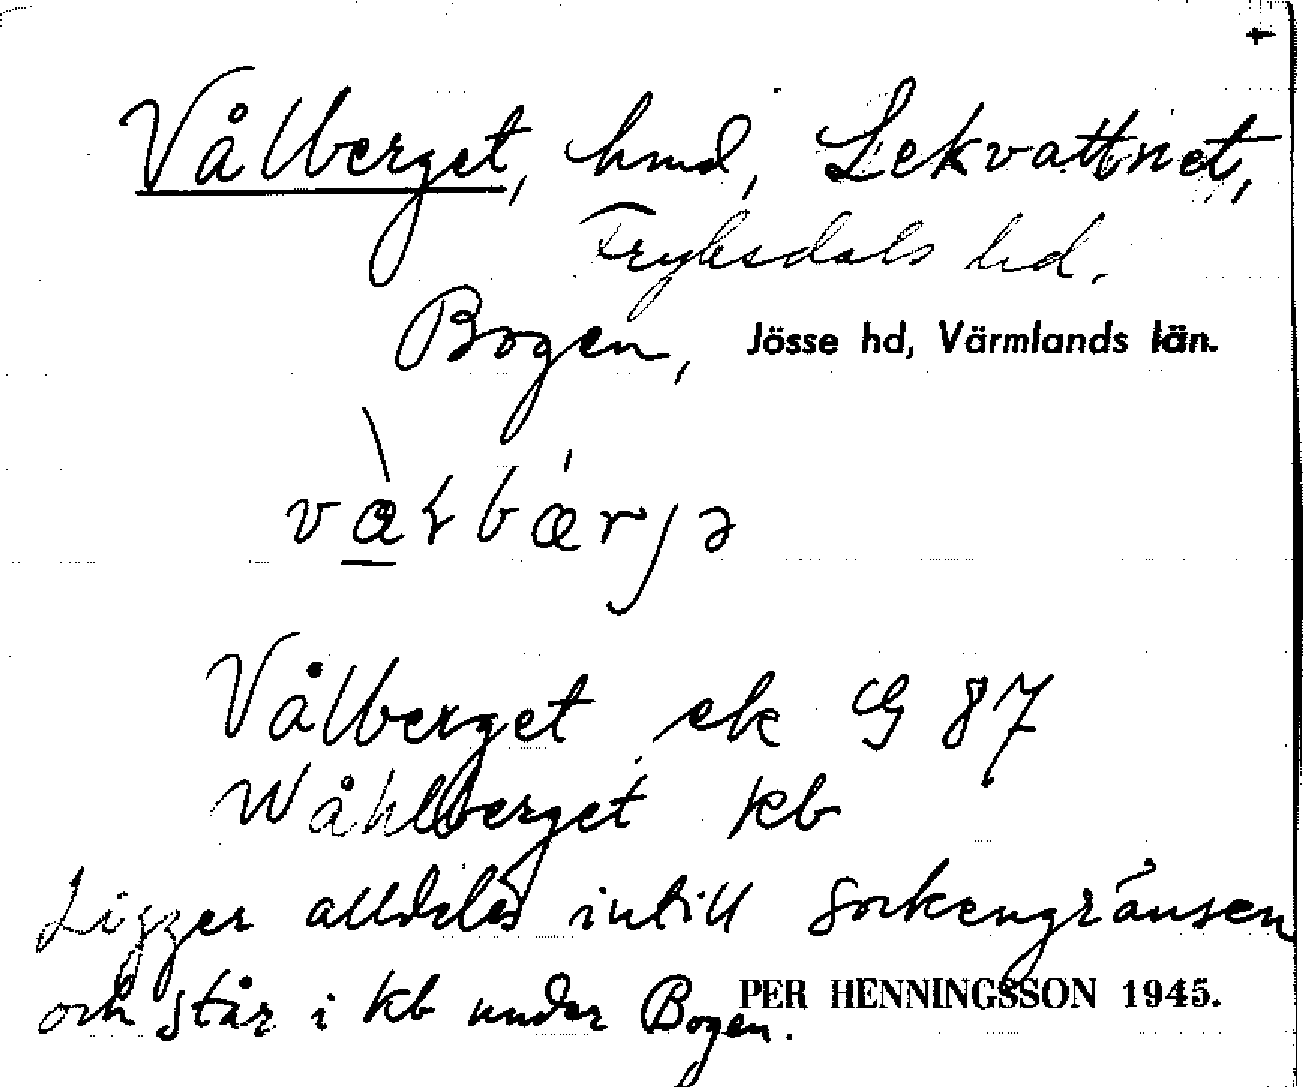 Vålberget, hmd, Lekvattnet,
Fryksdals hd.
Bogen, Jösse hd, Värmlands län.
Vålberget ek G 87
Wåhlberget kb
Ligger alldeles intill sockengränsen
och står i kb under Bogen.
PER HENNINGSSON 1945.